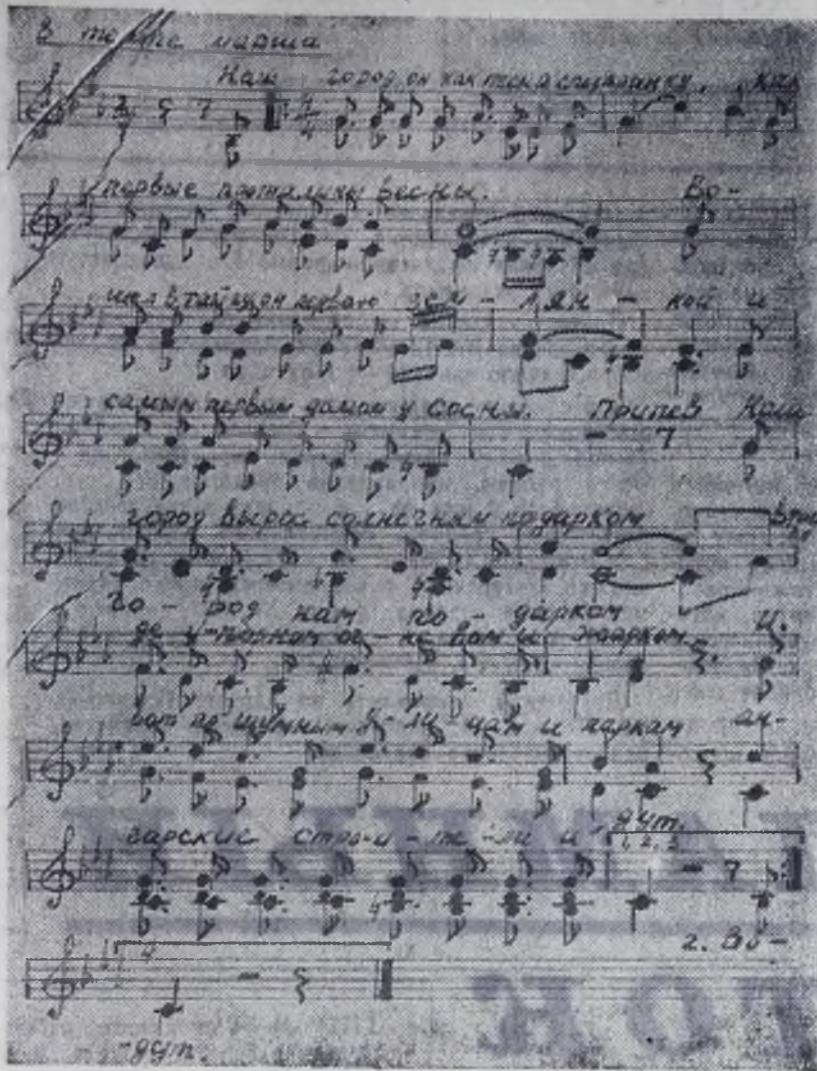 В темпе марша
Наш город, он как песня спозаранку, как
первые проталины весны. Во-
шел в тайгу он первою зем - лян - кой и
самым первым домом у сосны. Припев Наш
город вырос солнечным подарком
го - род нам по - дарком
ог - не вам и жарком. И.
вот по шумным у - ли - цам и паркам ан-
гарские строи - те - ли и
дут.
1, 2, 3
2. Во-
4
-дут.